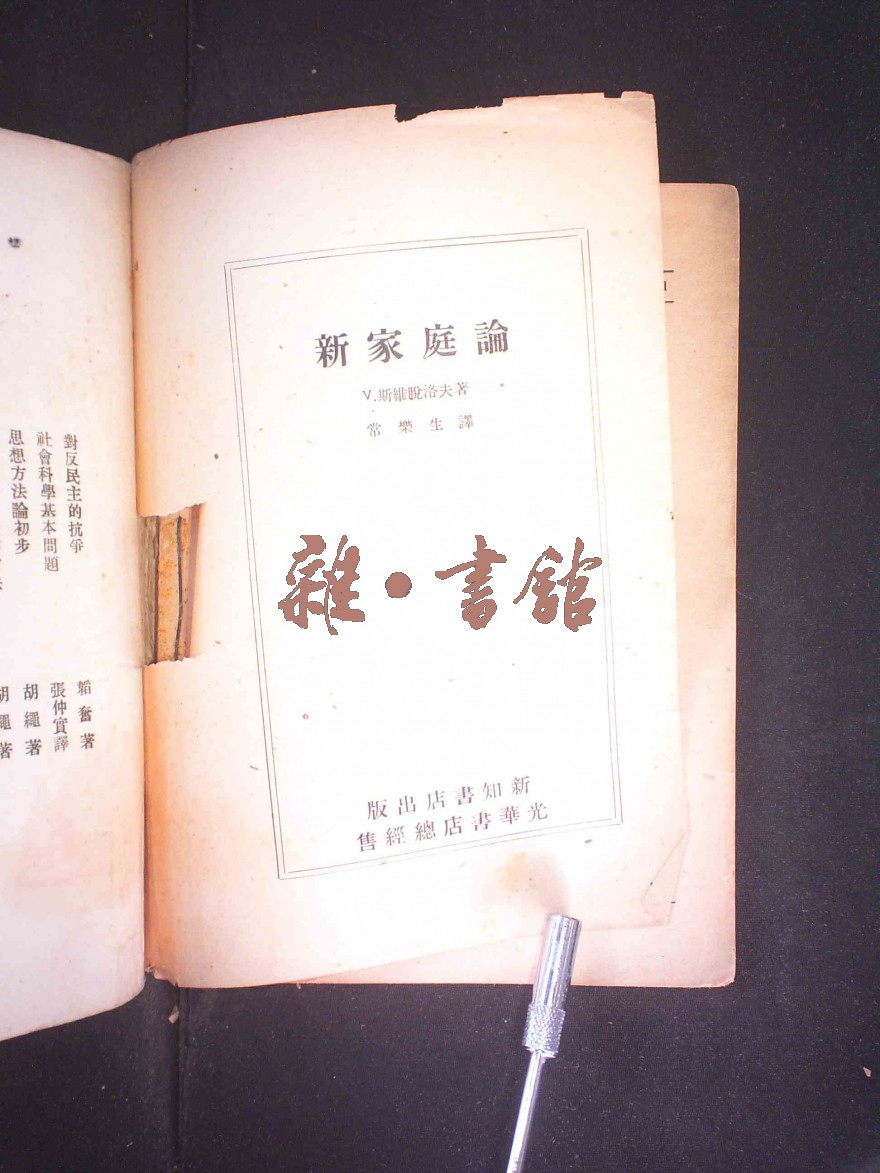 對反民主的抗爭 韜奮著
社會科學基本問題 張仲實譯
思想方法論初步 胡繩著
胡繩著
新家庭論
V.斯維脫洛夫著
常樂生譯
雜•書館
新知書店出版
光華書店總經售